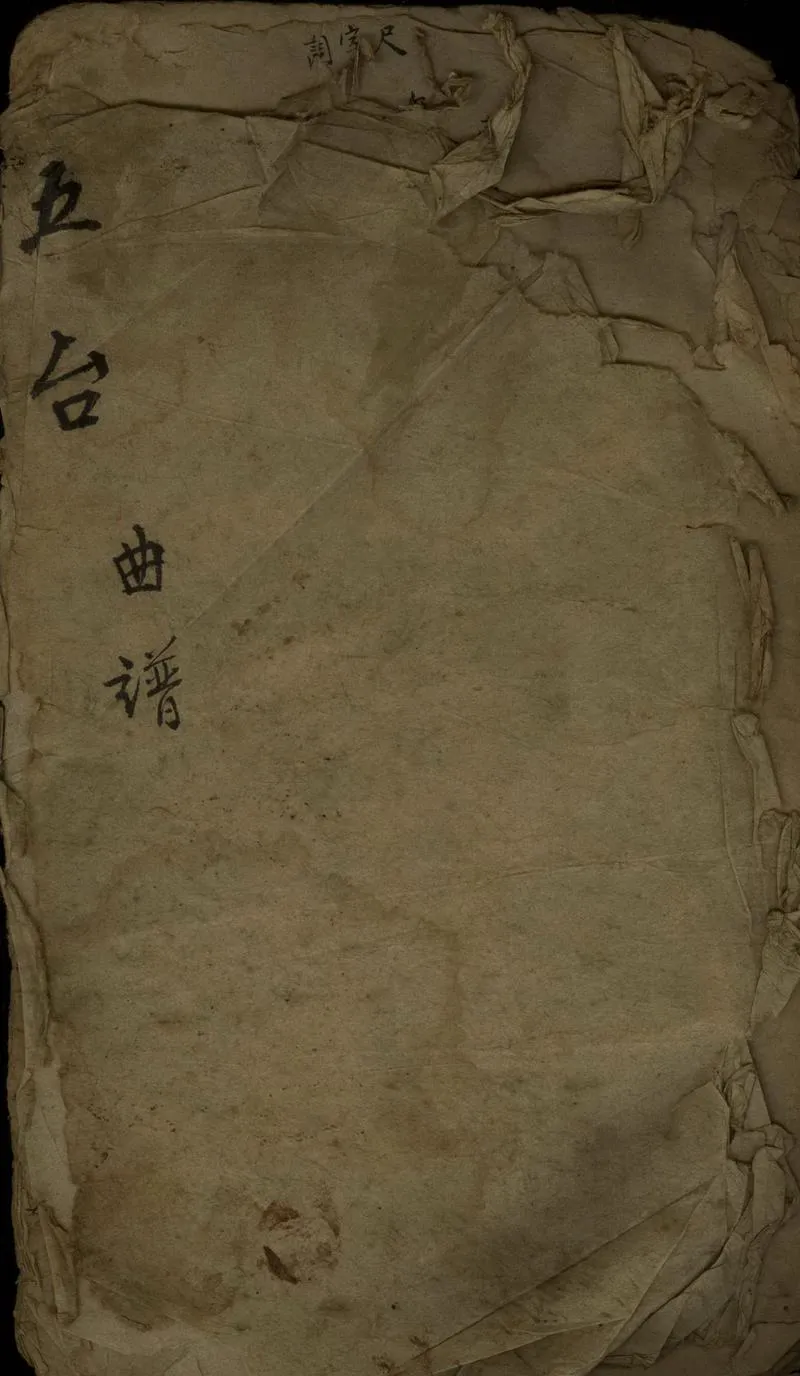 尺字調
五台
曲譜